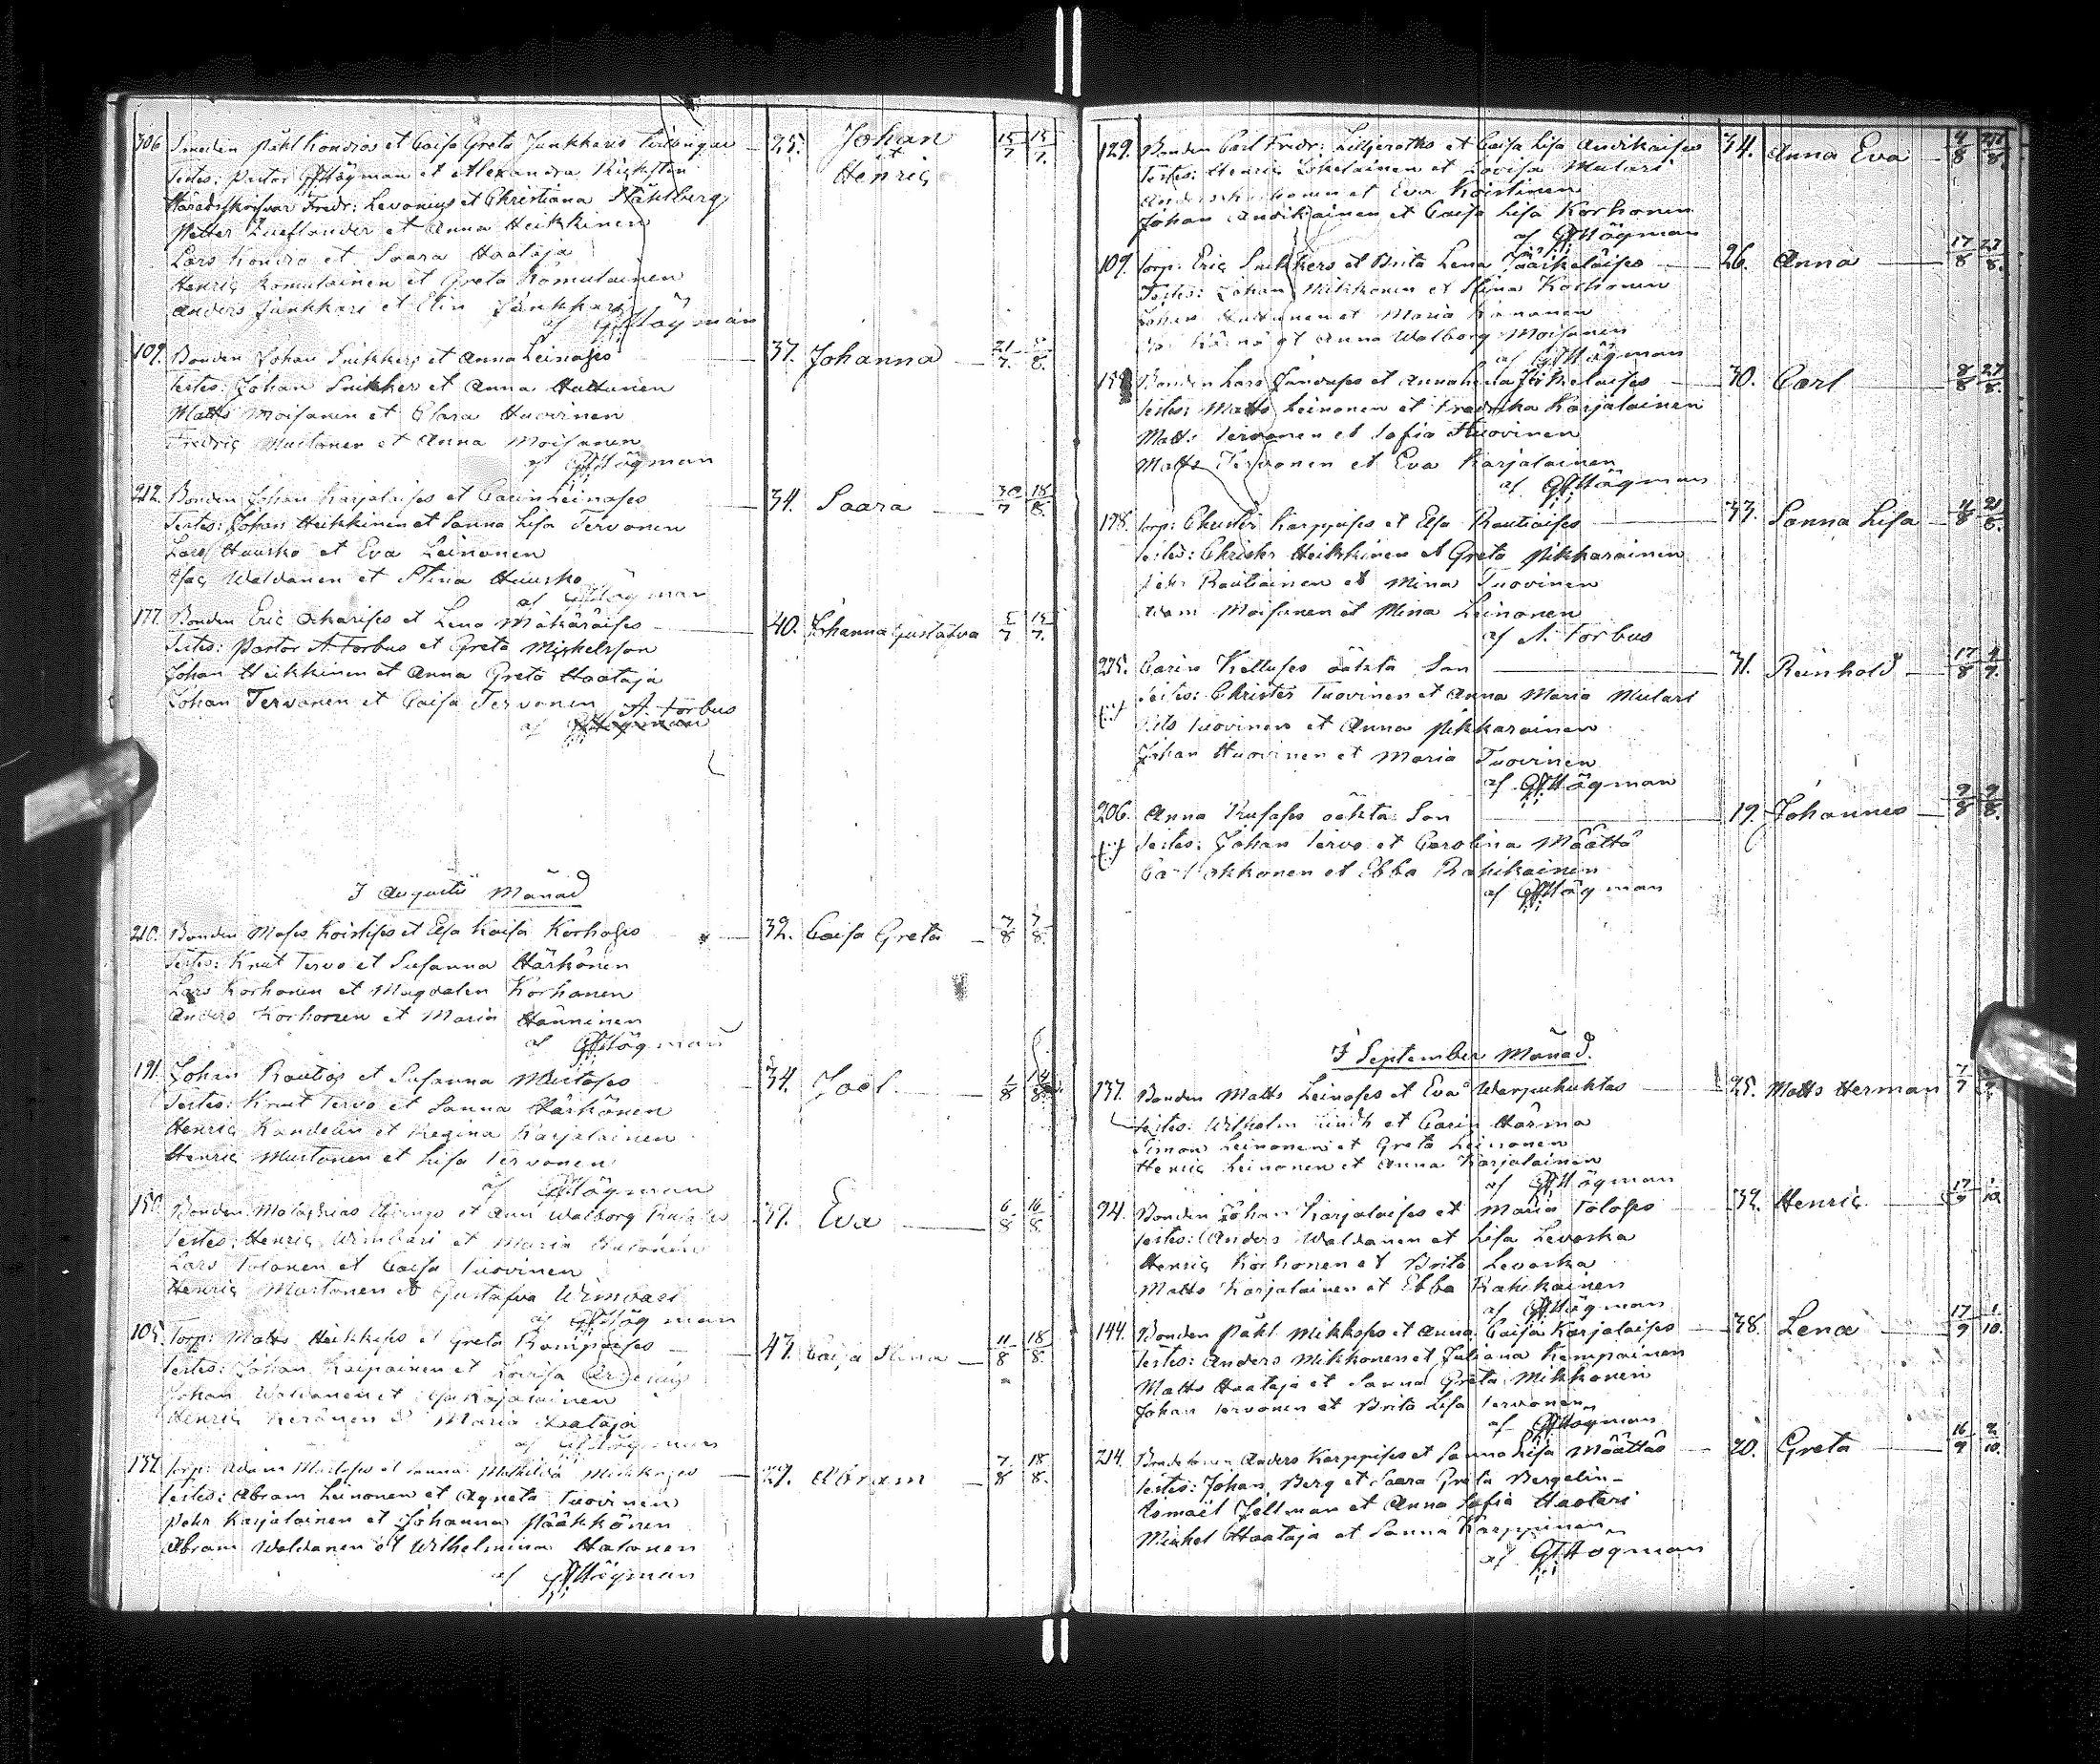 306 Smeden Påhl Kondras et Caisa Greta Junkkaris — 25. Johan 15/7 15/7.
Testes: Pastor GFHögman et Alexandra
Henric
Fredr: Levonius et Christiana Ståhlberg
Petter et Anna Heikkinen
Lars Kondra et Saara Haataja
Henric Komulainen et Greta Komulainen
Anders Junkkari et Elin Junkkari
af GFHögman
109. Bonden Johan Snikkers et Anna Leinoses — 37. Johanna — 21/7. 5/8.
Testes: Johan Snikker et Anna Huttunen
Matts Moisanen et Clara Huovinen
Fredric Mustonen et Anna Moisanen
af GFHögman
212. Bonden Johan Karjalaises et Carin Leinoses — 34. Saara — 30/7 18/8.
Testes: Johan Heikkinen et Sanna Lisa Tervonen
Lars Huusko et Eva Leinonen
Isac Waldanen et Stina Huusko
af GFHögman
177. Bonden Eric et Lena Mäkäräises — 40. Johanna Gustafva 5/7 15/7.
Testes: Pastor A. Forbus et Greta Mickelsson
Johan Heikkinen et Anna Greta Haataja
Johan Tervonen et Caisa Tervonen
af A. Forbus
I Augusti Månad
210. Bonden Moses Koistises et Elsa Kaisa Korhoses — 32. Caisa Greta — 7/8 7/8.
Testes: Knut Tervo et Susanna Härkönen
Lars Korhonen et Magdalen Korhonen
Anders Korhonen et Maria Hänninen
af GFHögman
191. Johan Rautios et Susanna Mustoses — 34. Joel — 1/8 14/8.
Testes: Knut Tervo et Sanna Härkönen
Henric Kandelin et Regina Karjalainen
Henric Mustonen et Lisa Tervonen
af GFHögman
150. Bonden et Ann Walborg — 39. Eva — 6/8 16/8.
Testes: Henric Wimbari et Maria
Lars Tolonen et Caisa Tuovinen
Henric Mustonen et Gustafva Wimbari
af GFHögman
105. Torp: Matts Heikkises et Greta Kempaises — 47. Caisa Stina — 11/8 18/8.
Testes: Johan Kaipainen et Lovisa
Johan Waldanen et Karjalainen
Henric Keränen et Maria Haataja
af GFHögman
132. Torp: Adam Mustoses et Sanna Mathilda Mikkoses — 29. Abram — 7/8 18/8.
Testes: Abram Leinonen et Agneta Tuovinen
Pehr Karjalainen et Johanna Pääkkönen
Abram Waldanen et Wilhelmina Halonen
af GFHögman
129. Bonden Carl Fredr: Liljeroths et Caisa Lisa Andikaises 34. Anna Eva — 4/8
Testes: Henric et Lovisa Mulari
et Eva Koistinen
Johan Andikainen et Caisa Lisa Korhonen
af GFHögman
109. Torp: Eric Snikkers et Brita Lena Jääskeläises — 26. Anna — 17/8 27/8.
Testes: Johan Mikkonen et Stina Korhonen
Johan Huttunen et Maria
et Anna Walborg Moisanen
af GFHögman
Bonden Lars et Anna — 30. Carl — 8/8 27/8.
Testes: Matts Leinonen et Fredrika Karjalainen
Matts Tervonen et Sofia Huovinen
Matts Tervonen et Eva Karjalainen
af GFHögman
178. Torp: Christer Karppises et Elsa Rautiaises — 33. Sanna Lisa — 21/8.
Testes: Christer Heikkinen et Greta Pikkarainen
Pehr Rautiainen et Mina Tuovinen
Adam Moisanen et Mina Leinonen
af A. Forbus
275. Carin Kelloses oäkta Son — 31. Reinhold — 17/8 4/9.
Testes: Christer Tuovinen et Anna Maria Mulari
Nils Tuovinen et Anna Pikkarainen
Johan Huovinen et Maria Tuovinen
af GFHögman
206. Anna oäkta Son — 19. Johannes — 9/8 9/8.
Testes: Johan Tervo et Carolina Määttä
Carl et Ebba Rahikainen
af GFHögman
I September Månad.
137. Bonden Matts Leinoses et Eva Warpuhuktas — 25. Matts Herman
Testes: Wilhelm Lindh et Carin Härmä
Simon Leinonen et Greta Leinonen
Henric Leinonen et Anna Karjalainen
af GFHögman
94. Bonden Johan Karjalaises et Maria Toloses 39. Henric — 17/9 1/10.
Testes: Anders Waldanen et Lisa Levoska
Henric Korhonen et Brita Levoska
Matts Karjalainen et Ebba Rahikainen
af GFHögman
144. Bonden Påhl Mikkoses et Anna Caisa Karjalaises — 38. Lena — 17/9 1/10.
Testes: Anders Mikkonen et Juliana Kempainen
Matts Haataja et Sanna Greta Mikkonen
Johan Tervonen et Brita Lisa Tervonen
af GFHögman
214. Anders Karppises et Sanna Lisa Määttäs — 20. Greta — 16/9 2/10.
Testes: Johan Berg et Saara Greta Bergelin
Ismaël Fellman et Anna Sofia Haotari
Michel Haataja et Sanna Karppinen
af GFHögman